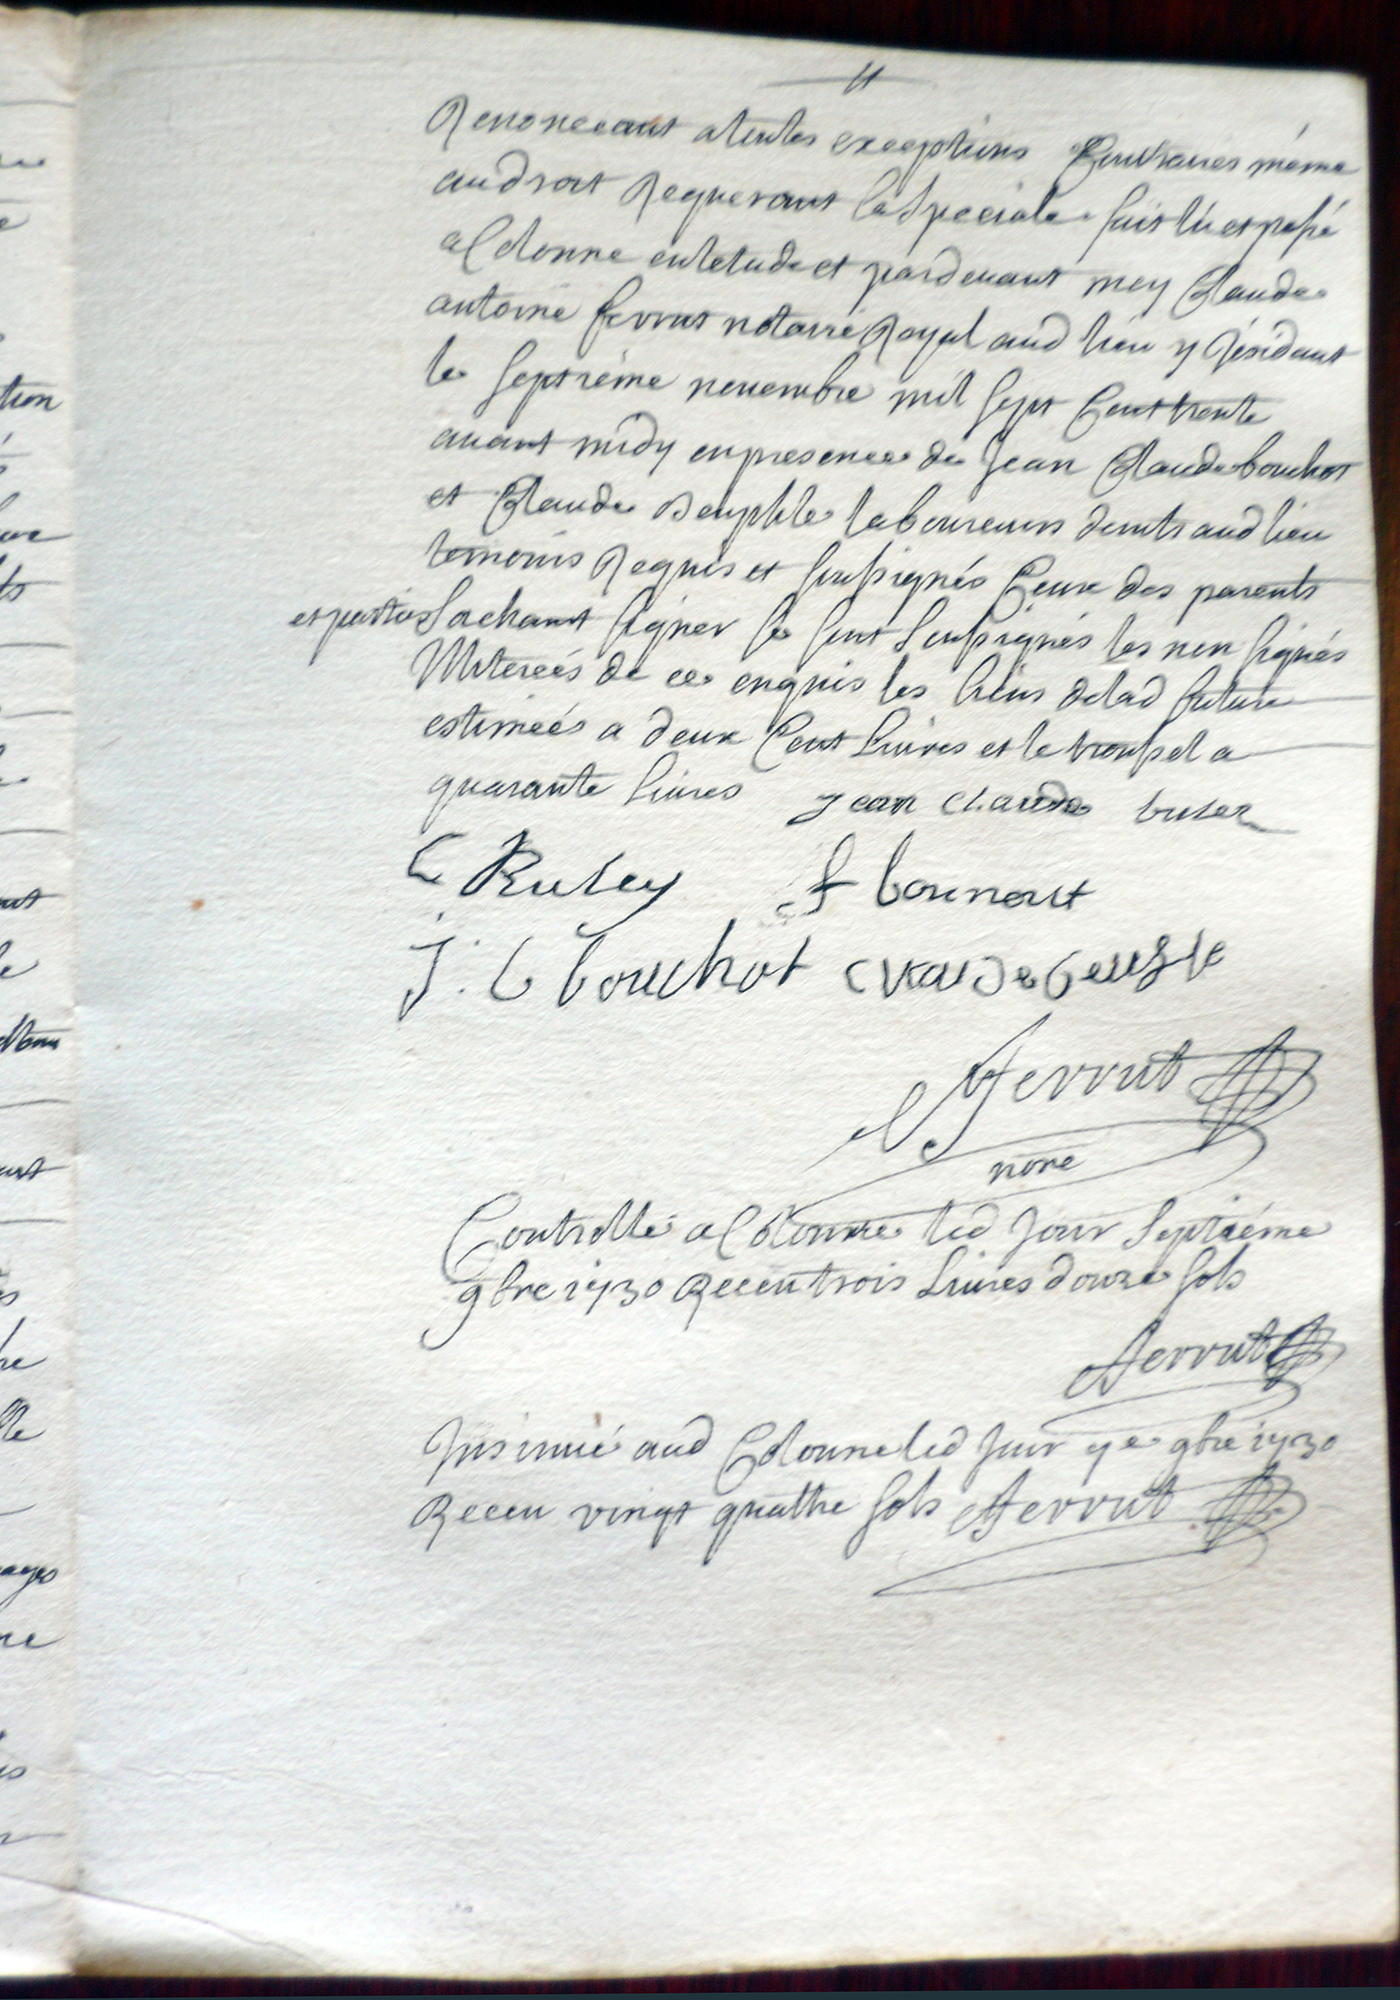 11
Renonceant a toutes exceptions Contraires méme
au droit Requerant la Speciale fait lû et passé
a Colonne en letude et pardevant moy Claude
antoine ferrut notaire Royal aud lieu y Résidant
le septiéme novembre mil sept Cent trente
avant midy en presence de Jean Claude bouchot
et Claude laboureurs dud lieu
temoins Requis et soussignés Ceux des parents
et parties Sachant signer se sont Soussignés les non signés
Illiterées de ce enquis les biens de lad future
estimeés a deux Cent Livres et le troussel a
quarante Livres Jean Claude
C Ruley f
J. C bouchot
ferrut
nore
Controllé a Colonne led Jour Septiéme
9bre 1730 Receu trois Livres douze sols
ferrut
Insinué aud Colonne led Jour 7e 9bre 1730
Receu vingt quatthe sols ferrut